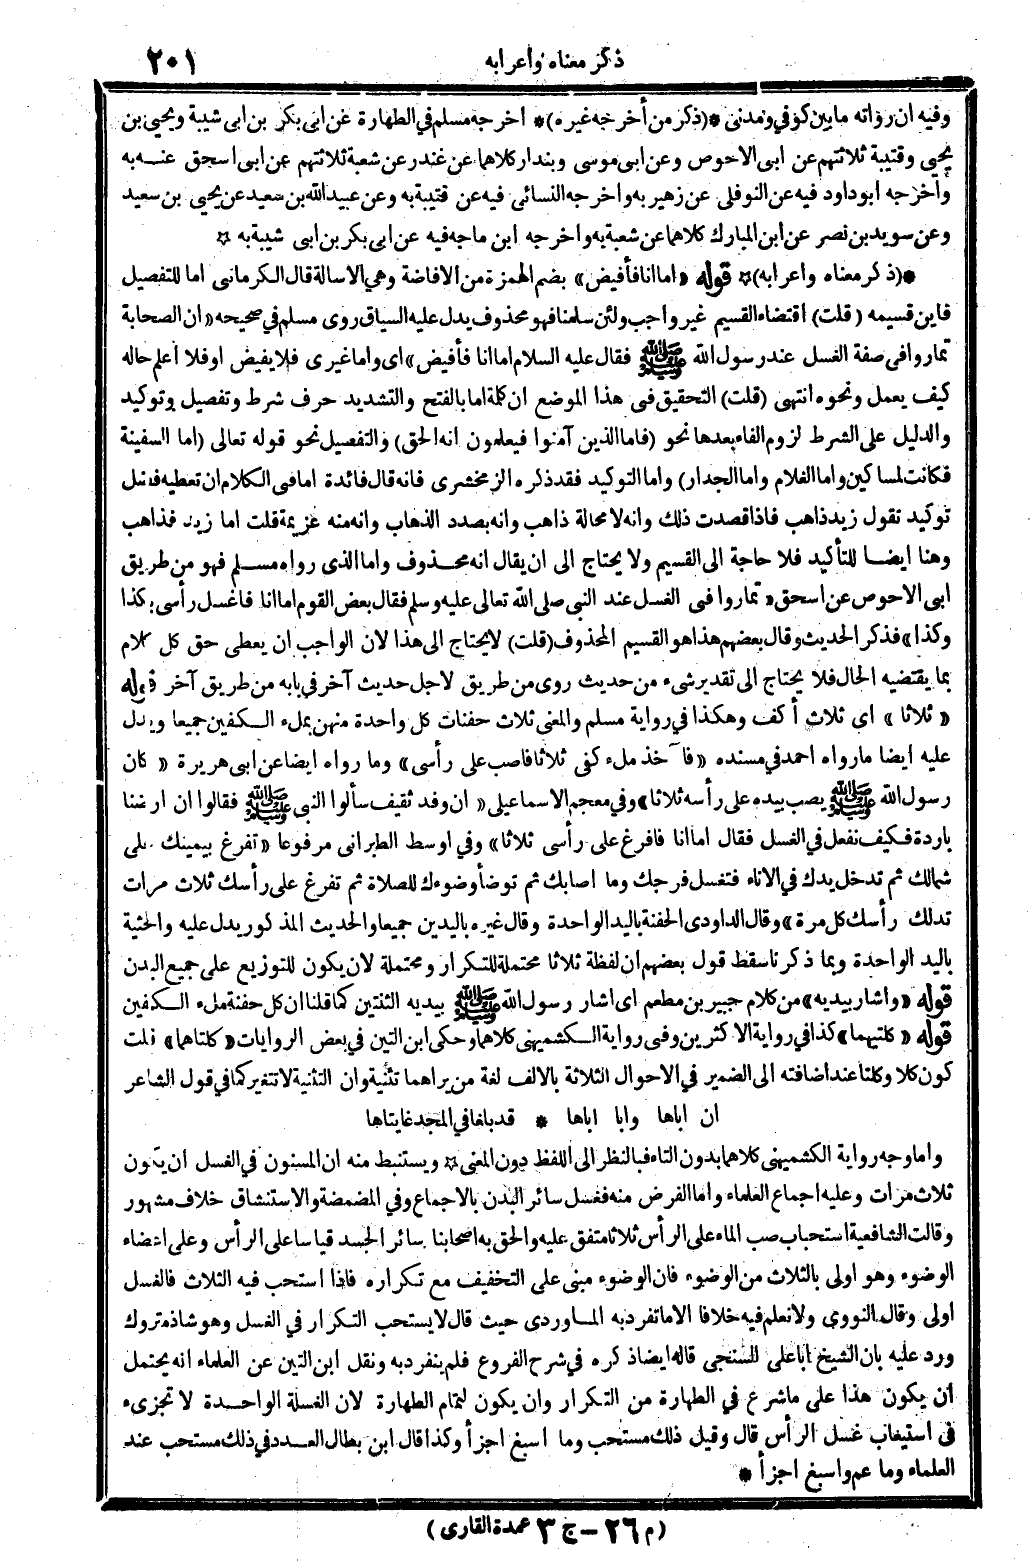 ذكر معناه واعرابه ٢٠١
وفيه ان رواته ما بين كوفي ومدنى *(ذكر من أخرجه غيره)* اخرجه مسلم في الطهارة عن ابى بكر بن ابى شيبة ويحيى بن
يحيى وقتيبة ثلاثتهم عن ابى الاحوص وعن ابى موسى وبندار كلاهما عن غندر عن شعبة ثلاثتهم عن ابى اسحق عنه به
وأخرجه ابو داود فيه عن النوفلى عن زهير به واخرجه النسائى فيه عن قتيبة به وعن عبيد الله بن سعيد عن يحيى بن سعيد
وعن سويد بن نصر عن ابن المبارك كلاهما عن شعبة به واخرجه ابن ماجه فيه عن ابى بكر بن ابى شيبة به ☆
*(ذكر معناه واعرابه)☆ قوله «اما انا فأفيض» بضم الهمزة من الافاضة وهي الاسالة قال الكرمانى اما للتفصيل
فاين قسيمه (قلت) اقتضاء القسيم غير واجب ولئن سلمنا فهو محذوف يدل عليه السياق روى مسلم في صحيحه «ان الصحابة
تماروا في صفة الغسل عند رسول الله ﷺ فقال عليه السلام اما انا فأفيض» اى واما غيرى فلا يفيض او فلا أعلم حاله
كيف يعمل ونحوه انتهى (قلت) التحقيق فى هذا الموضع ان كلمة اما بالفتح والتشديد حرف شرط وتفصيل وتوكيد
والدليل على الشرط لزوم الفاء بعدها نحو (فاما الذين آمنوا فيعلمون انه الحق) والتفصيل نحو قوله تعالى (اما السفينة
فكانت لمساكين واما الغلام واما الجدار) واما التوكيد فقد ذكره الزمخشرى فانه قال فائدة اما فى الكلام ان تعطيه فضل
توكيد تقول زيد ذاهب فاذا قصدت ذلك وانه لا محالة ذاهب وانه بصدد الذهاب وانه منه عزيمة قلت اما زيد فذاهب
وهنا ايضا للتأكيد فلا حاجة الى القسيم ولا يحتاج الى ان يقال انه محذوف واما الذى رواه مسلم فهو من طريق
ابى الاحوص عن اسحق «تماروا فى الغسل عند النبى صلى الله تعالى عليه وسلم فقال بعض القوم اما انا فاغسل رأسى بكذا
وكذا» فذكر الحديث وقال بعضهم هذا هو القسيم المحذوف (قلت) لا يحتاج الى هذا لان الواجب ان يعطى حق كل كلام
بما يقتضيه الحال فلا يحتاج الى تقدير شىء من حديث روى من طريق لاجل حديث آخر في بابه من طريق آخر قوله
«ثلاثا» اى ثلاث أكف وهكذا في رواية مسلم والمعنى ثلاث حفنات كل واحدة منهن بملء الكفين جميعا ويدل
عليه ايضا ما رواه احمد في مسنده «فآخذ ملء كفى ثلاثا فاصب على رأسى» وما رواه ايضا عن ابى هريرة «كان
رسول الله ﷺ يصب بيده على رأسه ثلاثا» وفي معجم الاسماعيلى «ان وفد ثقيف سألوا النبى ﷺ فقالوا ان ارضنا
باردة فكيف نفعل في الغسل فقال اما انا فافرغ على رأسى ثلاثا» وفي اوسط الطبرانى مرفوعا «تفرغ بيمينك على
شمالك ثم تدخل يدك في الاناء فتغسل فرجك وما اصابك ثم توضأ وضوءك للصلاة ثم تفرغ على رأسك ثلاث مرات
تدلك رأسك كل مرة» وقال الداودى الحفنة باليد الواحدة وقال غيره باليدين جميعا والحديث المذكور يدل عليه والحثية
باليد الواحدة وبما ذكرنا سقط قول بعضهم ان لفظة ثلاثا محتملة للتكرار ومحتملة لان يكون للتوزيع على جميع البدن
قوله «واشار بيديه» من كلام جبير بن مطعم اى اشار رسول الله ﷺ بيديه الثنتين كما قلنا ان كل حفنة ملء الكفين
قوله «كلتيهما» كذا في رواية الاكثرين وفى رواية الكشميهنى كلاهما وحكى ابن التين في بعض الروايات «كلتاهما» قلت
كون كلا وكلتا عند اضافته الى الضمير في الاحوال الثلاثة بالالف لغة من يراهما تثنية وان التثنية لا تتغير كما في قول الشاعر
ان اباها وابا اباها * قد بلغا في المجد غايتاها
واما وجه رواية الكشميهنى كلاهما بدون التاء فبالنظر الى اللفظ دون المعنى ☆ ويستنبط منه ان المسنون في الغسل ان يكون
ثلاث مرات وعليه اجماع العلماء واما الفرض منه فغسل سائر البدن بالاجماع وفي المضمضة والاستنشاق خلاف مشهور
وقالت الشافعية استحباب صب الماء على الرأس ثلاثا متفق عليه والحق به اصحابنا سائر الجسد قياسا على الرأس وعلى اعضاء
الوضوء وهو اولى بالثلاث من الوضوء فان الوضوء مبنى على التخفيف مع تكراره فاذا استحب فيه الثلاث فالغسل
اولى وقال النووى ولا نعلم فيه خلافا الا ما تفرد به الماوردى حيث قال لا يستحب التكرار في الغسل وهو شاذ متروك
ورد عليه بان الشيخ ابا على السنجى قاله ايضا ذكره في شرح الفروع فلم ينفرد به ونقل ابن التين عن العلماء انه يحتمل
أن يكون هذا على ما شرع في الطهارة من التكرار وان يكون لتمام الطهارة لان الغسلة الواحدة لا تجزىء
فى استيعاب غسل الرأس قال وقيل ذلك مستحب وما اسبغ اجزأ وكذا قال ابن بطال العدد في ذلك مستحب عند
العلماء وما عم واسبغ اجزأ *
(م ٢٦ - ج ٣ عمدة القارى)